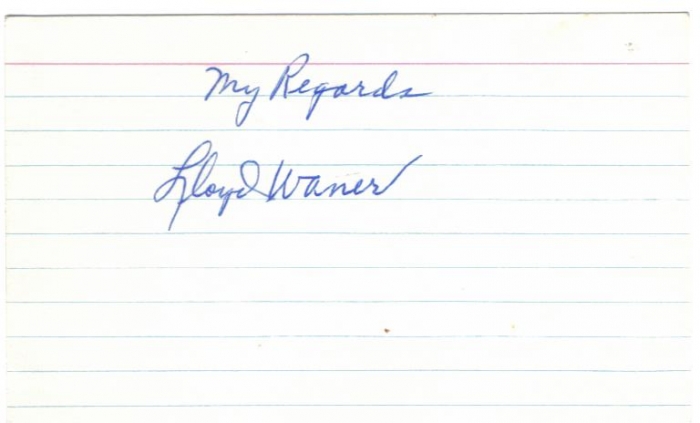 My Regards
Lloyd Waner